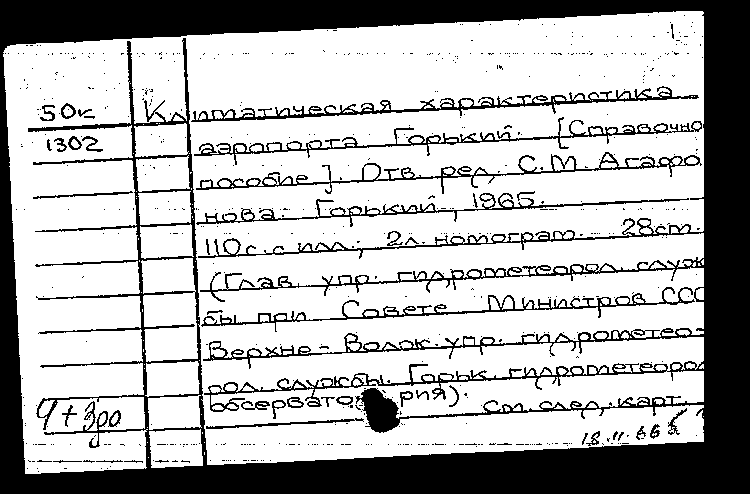 50к Климатическая характеристика
1302 аэропорта Горький. [Справочно
пособие]. Отв. ред. С.М. Агафо
нова. Горький, 1965.
110 с. с илл.; 2 л. номограм. 28 см.
(Глав. упр. гидрометеорол. служ
бы при Совете Министров ССС
Верхне-Волж. упр. гидрометео-
рол. службы. Горьк. гидрометеорол
обсерватория).
Ч+Зро См. след. карт.
18.11.66